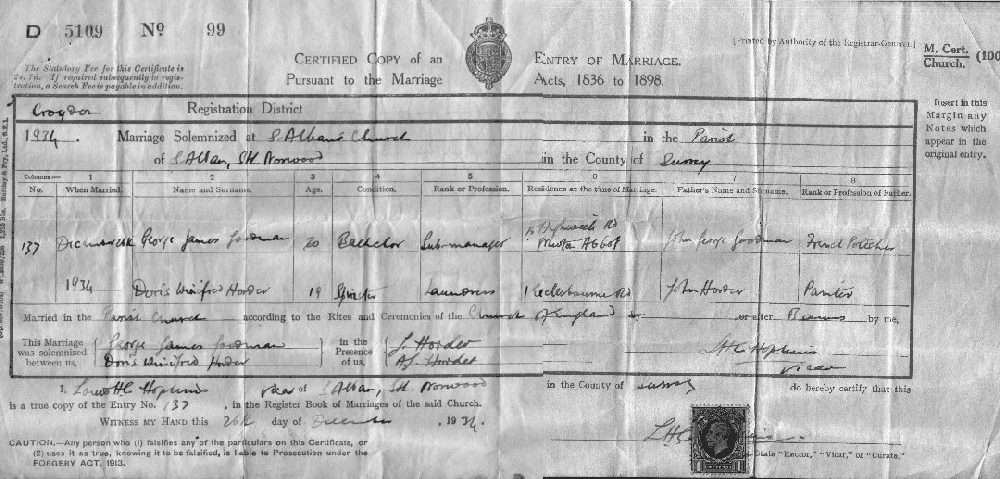 D 5109 No 99
[Printed by Authority of the Registrar-General.]
M. Cert.
Church.
(100
The Statutory Fee for this Certificate is
2s. 7d. If required subsequently to regis-
tration, a Search Fee is payable in addition.
CERTIFIED COPY OF AN ENTRY OF MARRIAGE.
PURSUANT TO THE MARRIAGE ACTS, 1836 TO 1898.
Insert in this
Margin any
Notes which
appear in the
original entry.
Croydon Registration District
1934. Marriage Solemnized at S Albans Church in the Parish
of S Alban, Sth Norwood in the County of Surrey
Columns:— 1 2 3 4 5 6 7 8
No. When Married. Name and Surname. Age. Condition. Rank or Profession. Residence at the time of Marriage. Father's Name and Surname. Rank or Profession of Father.
137 December 26 George James Goodman 20 Bachelor Sub-manager Merton Abbot John George Goodman French Polisher
1934 Doris Winifred Horder 19 Spinster Laundress 1 Ecclesbourne Rd John Horder Painter
Married in the Parish Church according to the Rites and Ceremonies of the Church of England or after Banns by me,
This Marriage
was solemnized
between us,
George James Goodman
Doris Winifred Horder
in the
Presence
of us,
J. Horder
A.J. Horder
L H C Hopkins
Vicar
I, H C Hopkins Vicar of S Alban, Sth Norwood in the County of Surrey do hereby certify that this
is a true copy of the Entry No. 137, in the Register Book of Marriages of the said Church.
WITNESS MY HAND this 26th day of December, 1934.
CAUTION.—Any person who (1) falsifies any of the particulars on this Certificate, or
(2) uses it as true, knowing it to be falsified, is liable to Prosecution under the
FORGERY ACT, 1913.
State "Rector," "Vicar," or "Curate."